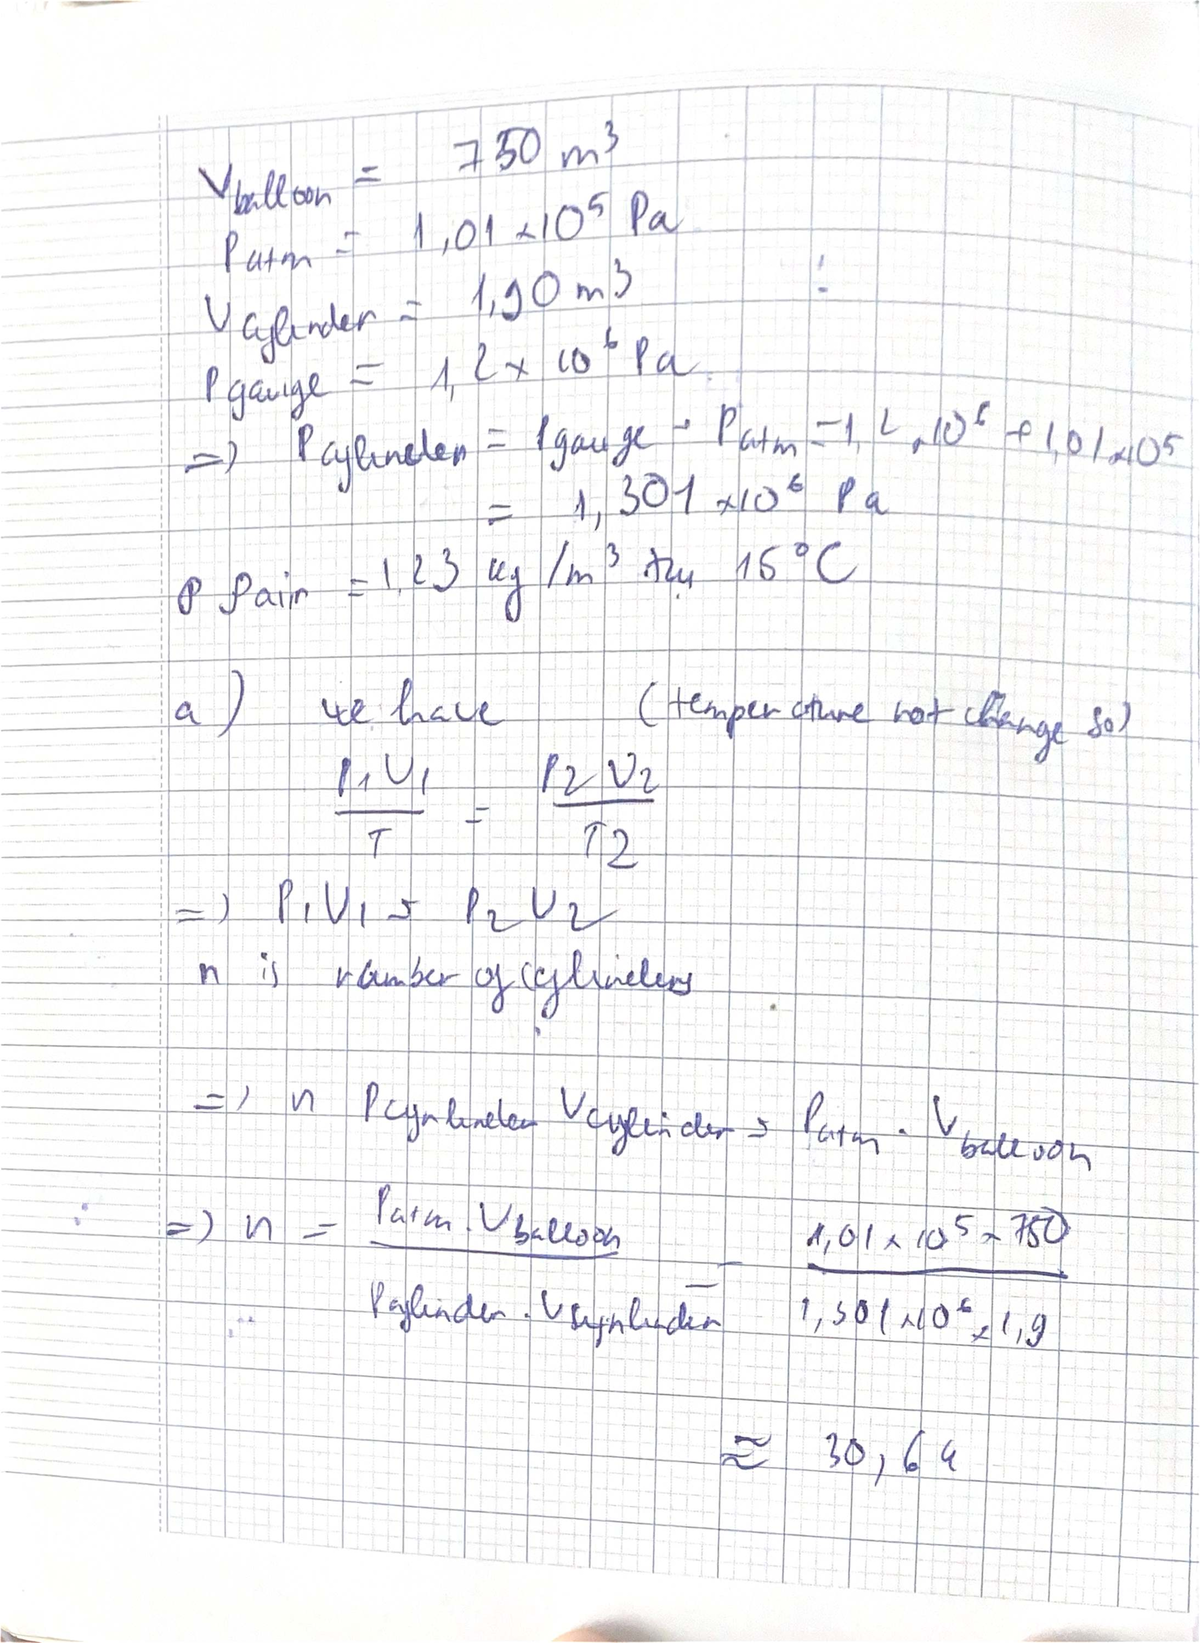 V balloon = 750 m³
Patm = 1,01 × 10⁵ Pa
V cylinder = 1,90 m³
P gauge = 1,2 × 10⁶ Pa
=> P cylinder = P gauge + Patm = 1,2 × 10⁶ + 1,01 × 10⁵
= 1,301 × 10⁶ Pa
ρ air = 1,23 kg/m³ 15°C
a) we have (temperature not change so)
P₁V₁/T = P₂V₂/T2
=> P₁V₁ = P₂V₂
n is number of cylinders
=> n Pcynlinder Vcylinder = Patm . V balloon
=> n = Patm . V balloon / Pcylinder . V cynlinder = 1,01 × 10⁵ × 750 / 1,301 × 10⁶ × 1,9
≈ 30,64